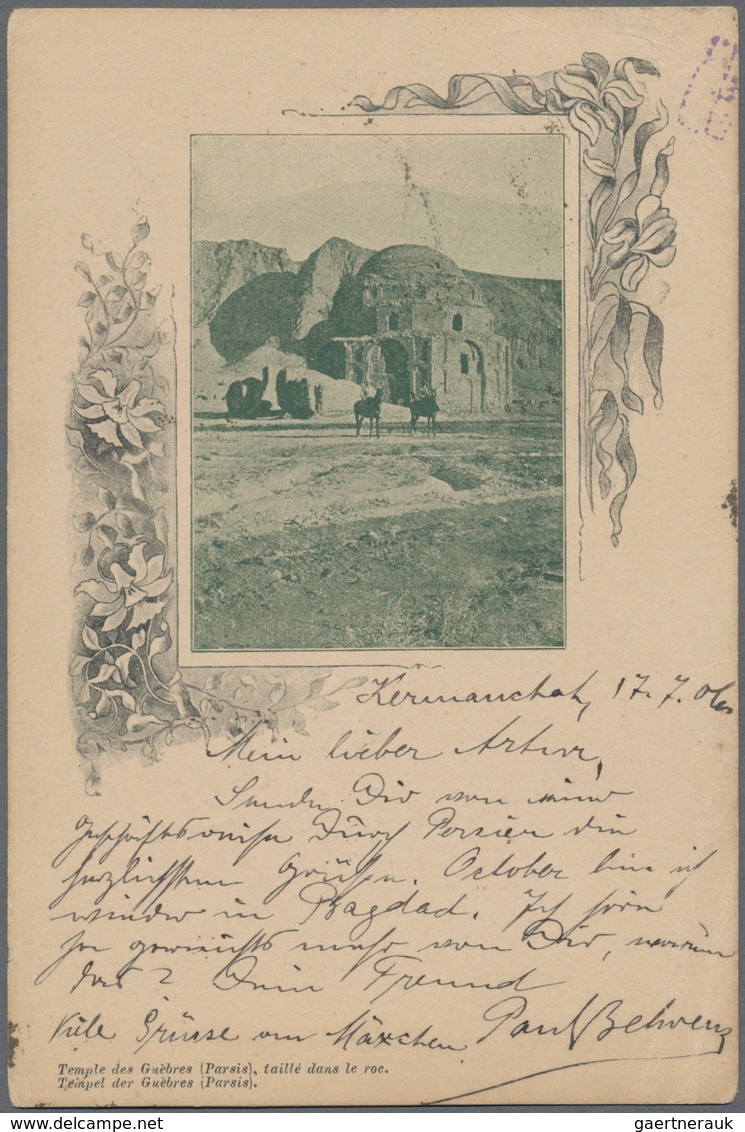 Kermanchah, 17.7.06
Mein lieber Artur,
Sende Dir von einer
Geschäftsreise durch Persien die
herzlichsten Grüße. October bin ich
wieder in Bagdad. Ich höre
ja garnichts mehr von Dir, warum
das? Dein Freund
Viele Grüsse an Mäxchen Paul
Temple des Guèbres (Parsis), taillé dans le roc.
Tempel der Guèbres (Parsis).
gaertnerauk